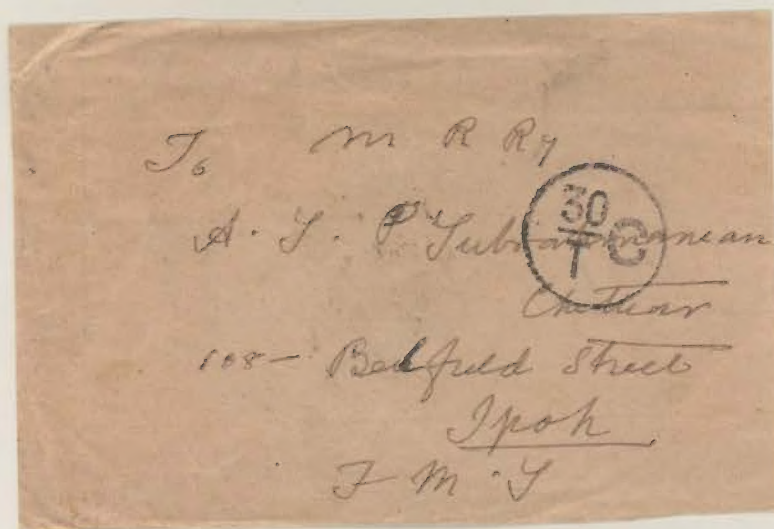 To M R Ry
A. S. P Subramaniam
30
T C
Chettiar
108 - Belfield Street
Ipoh
F M. S